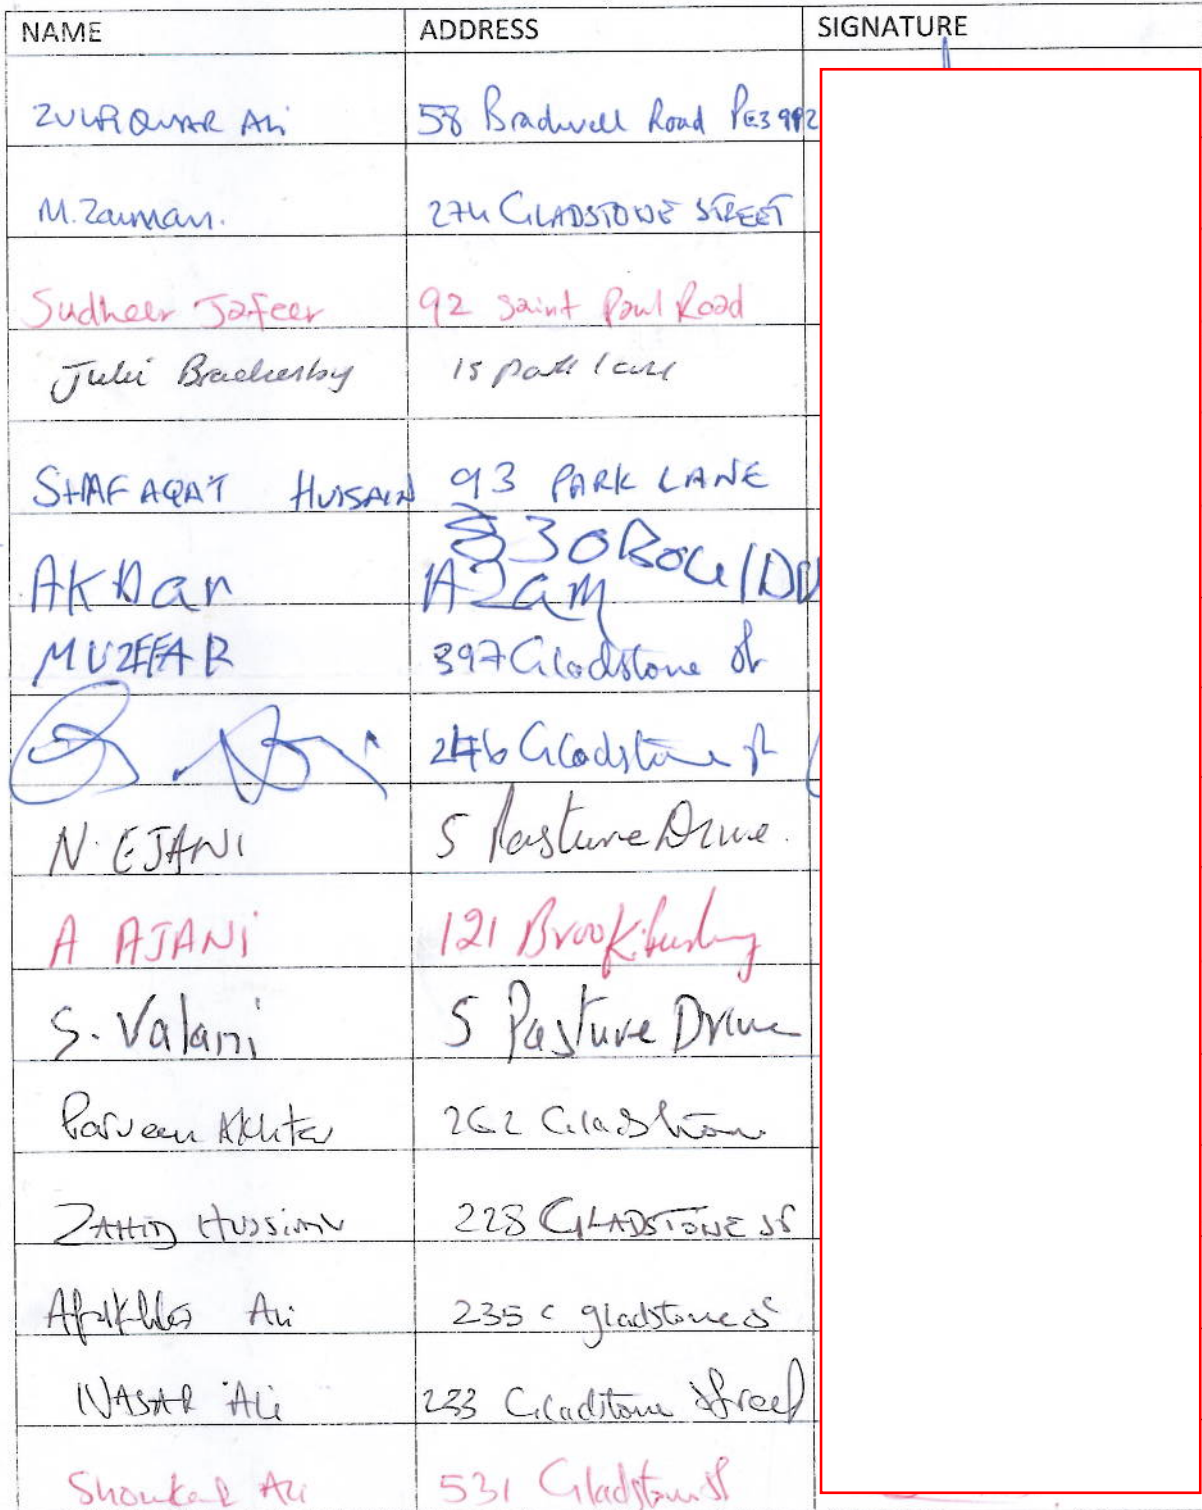 NAME ADDRESS SIGNATURE
ZULFIQUAR Ali 58 Bradwell Road PE3 9PZ
M. Zaman. 274 GLADSTONE STREET
Sudheer Jafeer 92 Saint Paul Road
Julie 15 park lane
SHAFAQAT HUSSAIN 93 PARK LANE
330
Akbar Azam
MUZFFAR 397 Gladstone St
246 Gladstone St
N. EJANI 5 Pasture Drive.
A AJANI 121
S. Valani 5 Pasture Drive
Parveen Akhtar 262 Gladstone
ZAHID HUSSIAN 228 GLADSTONE ST
Ali 235 c gladstone St
NASAR Ali 233 Gladstone Street
Shoukat Ali 531 Gladstone St